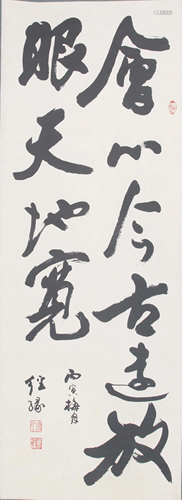 會心今古遠放
眼天地寬
丙寅梅月